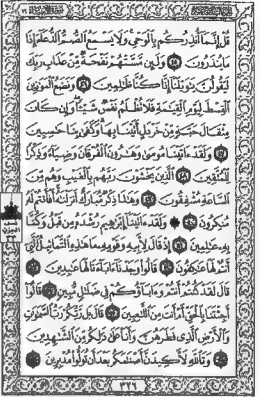 قُلْ إِنَّمَآ أُنذِرُكُم بِٱلْوَحْىِ وَلَا يَسْمَعُ ٱلصُّمُّ ٱلدُّعَآءَ إِذَا
مَا يُنذَرُونَ ۝٤٥ وَلَئِن مَّسَّتْهُمْ نَفْحَةٌ مِّنْ عَذَابِ رَبِّكَ
لَيَقُولُنَّ يَٰوَيْلَنَآ إِنَّا كُنَّا ظَٰلِمِينَ ۝٤٦ وَنَضَعُ ٱلْمَوَٰزِينَ
ٱلْقِسْطَ لِيَوْمِ ٱلْقِيَٰمَةِ فَلَا تُظْلَمُ نَفْسٌ شَيْـًٔا وَإِن كَانَ
مِثْقَالَ حَبَّةٍ مِّنْ خَرْدَلٍ أَتَيْنَا بِهَا وَكَفَىٰ بِنَا حَٰسِبِينَ
۝٤٧ وَلَقَدْ ءَاتَيْنَا مُوسَىٰ وَهَٰرُونَ ٱلْفُرْقَانَ وَضِيَآءً وَذِكْرًا
لِّلْمُتَّقِينَ ۝٤٨ ٱلَّذِينَ يَخْشَوْنَ رَبَّهُم بِٱلْغَيْبِ وَهُم مِّنَ
ٱلسَّاعَةِ مُشْفِقُونَ ۝٤٩ وَهَٰذَا ذِكْرٌ مُّبَارَكٌ أَنزَلْنَٰهُ أَفَأَنتُمْ لَهُۥ
مُنكِرُونَ ۝٥٠ ۞ وَلَقَدْ ءَاتَيْنَآ إِبْرَٰهِيمَ رُشْدَهُۥ مِن قَبْلُ وَكُنَّا
بِهِۦ عَٰلِمِينَ ۝٥١ إِذْ قَالَ لِأَبِيهِ وَقَوْمِهِۦ مَا هَٰذِهِ ٱلتَّمَاثِيلُ ٱلَّتِىٓ
أَنتُمْ لَهَا عَٰكِفُونَ ۝٥٢ قَالُوا۟ وَجَدْنَآ ءَابَآءَنَا لَهَا عَٰبِدِينَ ۝٥٣
قَالَ لَقَدْ كُنتُمْ أَنتُمْ وَءَابَآؤُكُمْ فِى ضَلَٰلٍ مُّبِينٍ ۝٥٤ قَالُوٓا۟
أَجِئْتَنَا بِٱلْحَقِّ أَمْ أَنتَ مِنَ ٱللَّٰعِبِينَ ۝٥٥ قَالَ بَل رَّبُّكُمْ رَبُّ ٱلسَّمَٰوَٰتِ
وَٱلْأَرْضِ ٱلَّذِى فَطَرَهُنَّ وَأَنَا۠ عَلَىٰ ذَٰلِكُم مِّنَ ٱلشَّٰهِدِينَ
۝٥٦ وَتَٱللَّهِ لَأَكِيدَنَّ أَصْنَٰمَكُم بَعْدَ أَن تُوَلُّوا۟ مُدْبِرِينَ ۝٥٧
٣٢٦